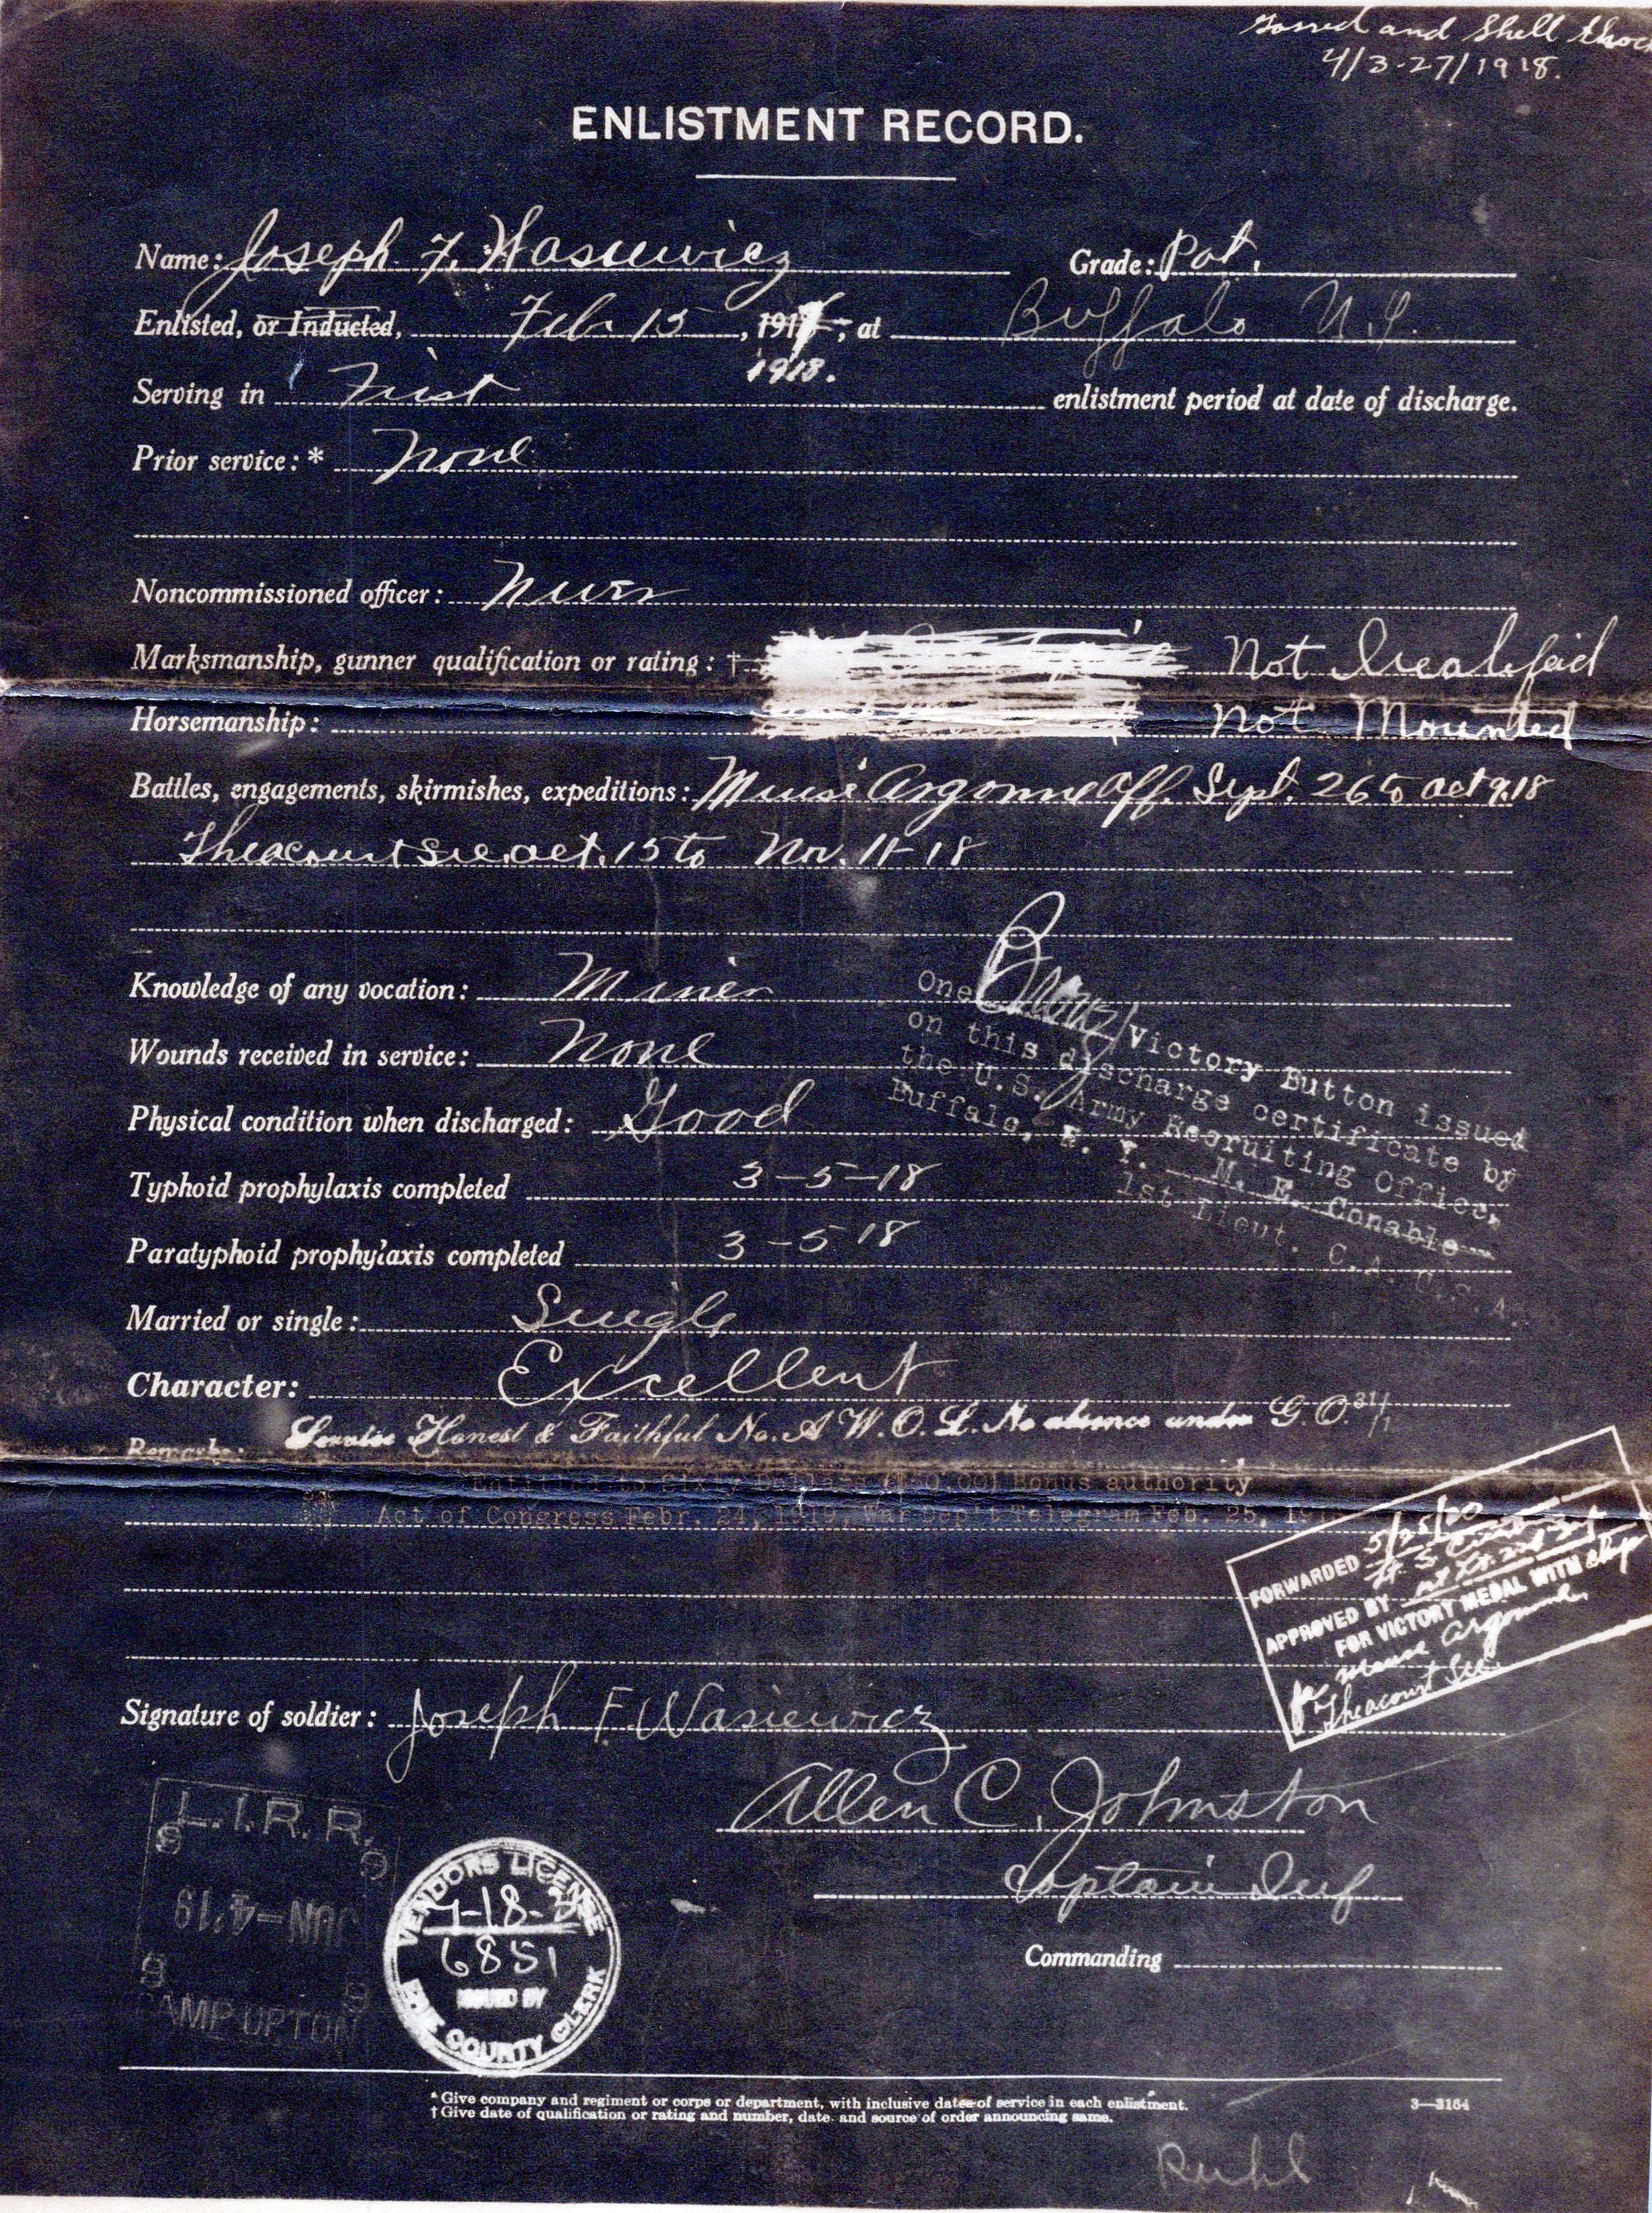 and Shell Shock
4/3-27/1918.
ENLISTMENT RECORD.
Name: Joseph F. Wasiewicz Grade: Pvt.
Enlisted, or Inducted, Feb. 15, 1917; at Buffalo N.Y.
1918.
Serving in First enlistment period at date of discharge.
Prior service: * None
Noncommissioned officer: Never
Marksmanship, gunner qualification or rating: † Not Qualified
Horsemanship: Not Mounted
Battles, engagements, skirmishes, expeditions: Meuse Argonne Off. Sept. 26 to Oct 9.18
Theacourt Sec. Oct. 15 to Nov. 11-18
Knowledge of any vocation: Miner
Wounds received in service: None
Physical condition when discharged: Good
Typhoid prophylaxis completed 3-5-18
Paratyphoid prophylaxis completed 3-5 18
Married or single: Single
Character: Excellent
Remarks: Service Honest & Faithful No. A W. O. L. No absence under G. O. 31/1
Entitled to Sixty Dollars ($60.00) Bonus authority
Act of Congress Febr. 24, 1919, War Dep't Telegram Feb. 25,
One Bronze Victory Button issued
on this discharge certificate by
the U.S. Army Recruiting Office,
Buffalo, N. Y. M. E. Conable
1st Lieut. C.A. U.S.A.
FORWARDED 5/25/20
APPROVED BY
FOR VICTORY MEDAL WITH clasp
for Meuse Argonne
Theacourt Sec.
Signature of soldier: Joseph F. Wasiewicz
Allen C. Johnston
Captain Inf
Commanding
L.I.R.R.
JUN-4,'19
CAMP UPTON
VENDORS LICENSE
6851
ISSUED BY
ERIE COUNTY CLERK
* Give company and regiment or corps or department, with inclusive dates of service in each enlistment.
† Give date of qualification or rating and number, date and source of order announcing same.
3—3164
Ruhl